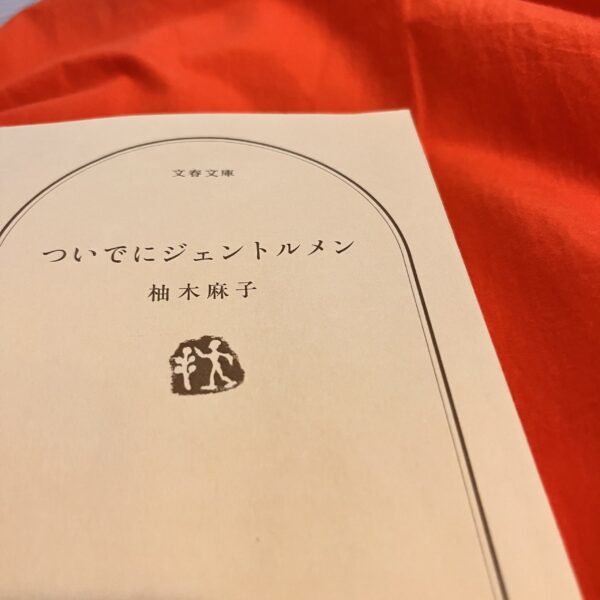 文春文庫
ついでにジェントルメン
柚木麻子